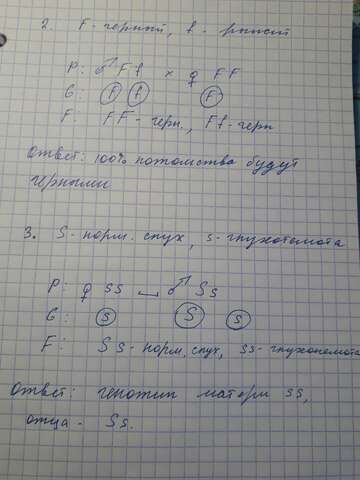 2. F - черный, f - рыжий
P: ♂ Ff × ♀ FF
G: F f F
F: FF - черн., Ff - черн
Ответ: 100% потомства будут
черными
3. S - норм. слух, s - глухотемота
P: ♀ ss ♂ Ss
G: s S s
F: Ss - норм. слух, ss - глухонемота
Ответ: генотип матери ss,
отца - Ss.